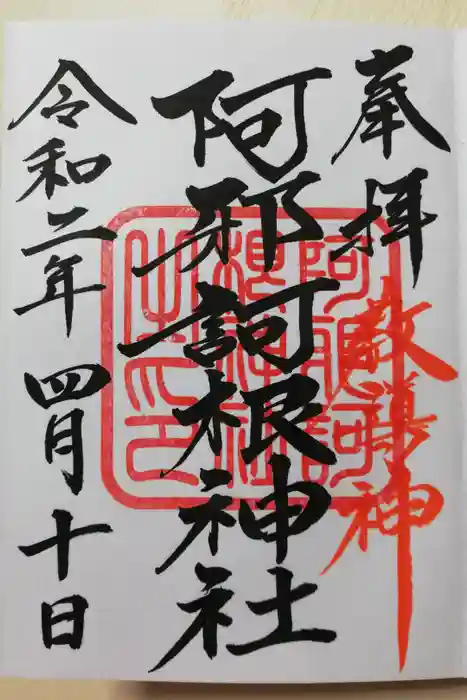 奉拝
神
阿邪訶根神社
阿邪訶
根神社
之印
令和二年 四月十日